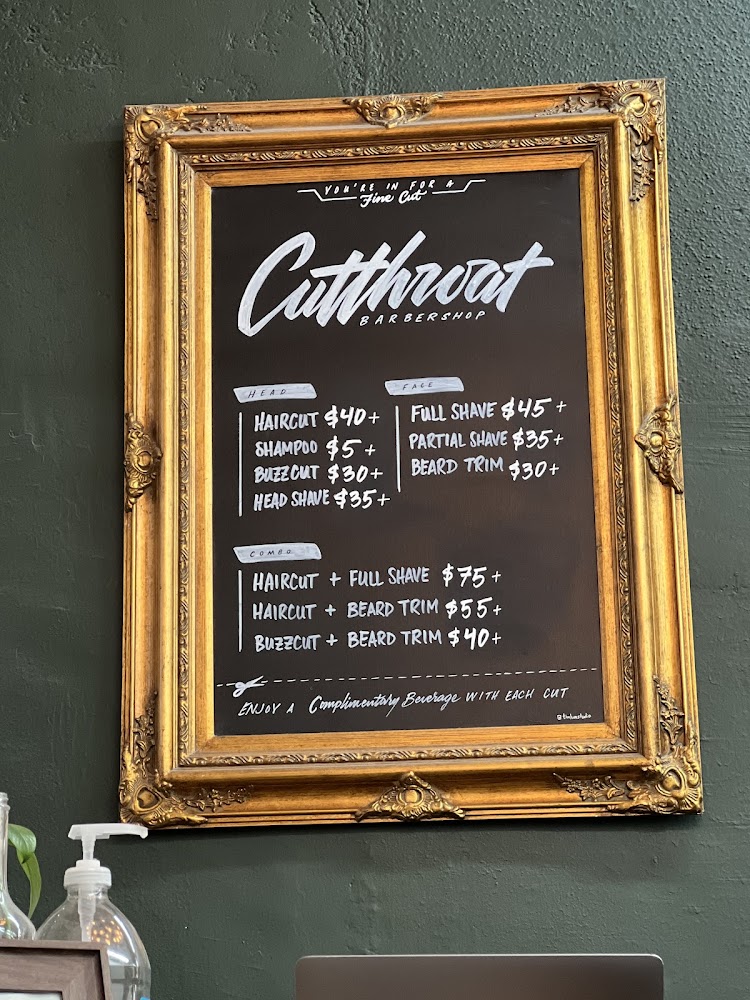 YOU'RE IN FOR A
Fine Cut
Cutthroat
BARBERSHOP
HEAD
HAIRCUT $40+
SHAMPOO $5+
BUZZCUT $30+
HEAD SHAVE $35+
FACE
FULL SHAVE $45+
PARTIAL SHAVE $35+
BEARD TRIM $30+
COMBO
HAIRCUT + FULL SHAVE $75+
HAIRCUT + BEARD TRIM $55+
BUZZCUT + BEARD TRIM $40+
ENJOY A Complimentary Beverage WITH EACH CUT